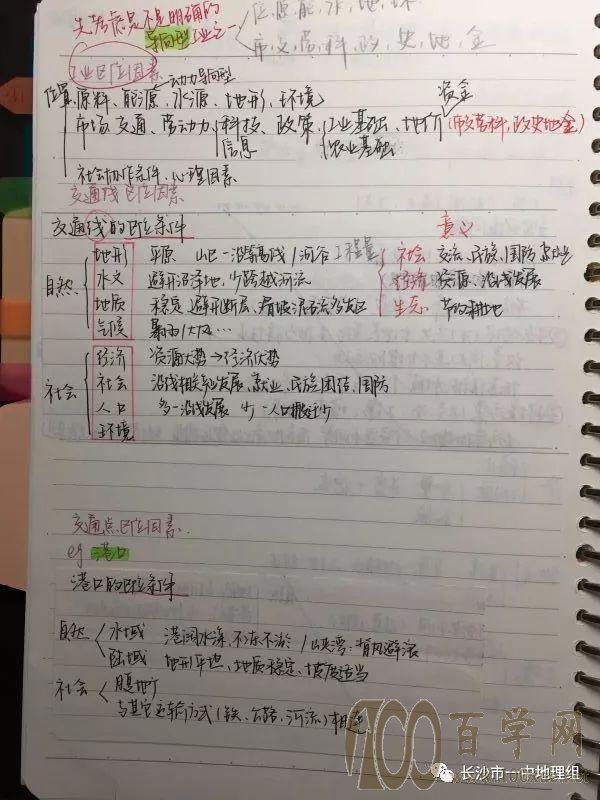 先考虑是不是明确的
导向型工业之一
位.原.能.水.地.环
市.交.劳.科.政.史.地.金
工业区位因素
动力导向型
位置 原料、能源、水源、地形、环境
资金
市场、交通、劳动力、科技、政策、工业基础、地价 (市交劳科,政史地金)
信息 农业基础
社会协作条件、心理因素
交通线区位因素
交通线的区位条件 意义
自然 地形 平原 山区—沿等高线/河谷 工程量 社会 交流、民族、国防
水文 避开沼泽地,少跨越河流 经济 资源、沿线发展
地质 稳定 避开断层、滑坡泥石流多发区 生态 节约耕地
气候 暴雨/大风…
社会 经济 资源优势→经济优势
社会 沿线相关产业发展、就业、民族团结、国防
人口 多—沿线发展 少—人口搬迁少
环境
交通点区位因素
eg 港口
港口的区位条件
自然 水域 港阔水深,不冻不淤 /峡湾:背风避浪
陆域 地形平坦、地质稳定、坡度适当
社会 腹地广
与其它运输方式(铁、公路、河流)相连
100百学网
长沙市一中地理组